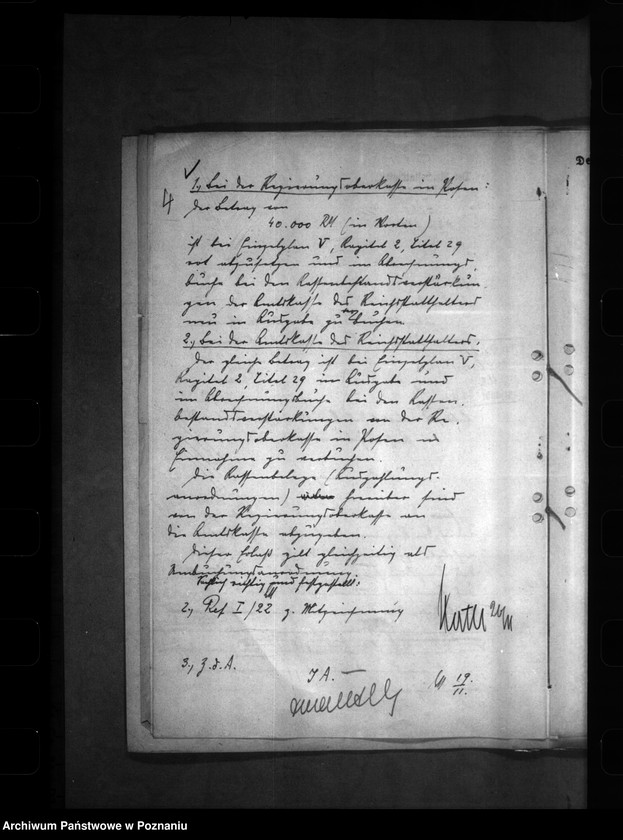 De
4
1.) Bei der Regierungsoberkasse in Posen:
Der Betrag von
40.000 RM (in Worten)
ist bei Einzelplan V, Kapitel 2, Titel 29
rot abzusetzen und im Abrechnungs-
buche bei den Kassenbestandsverstärkun-
gen der Amtskasse des Reichsstatthalters
neu in Ausgabe zu buchen.
2.) Bei der Amtskasse des Reichsstatthalters:
Der gleiche Betrag ist bei Einzelplan V,
Kapitel 2, Titel 29 in Ausgabe und
im Abrechnungsbuche bei den Kassen-
bestandsverstärkungen von der Re-
gierungsoberkasse in Posen in
Einnahme zu verbuchen.
Die Kassenbelege (Auszahlungs-
anordnungen) hierüber sind
von der Regierungsoberkasse an
die Amtskasse abzugeben.
Dieser Erlaß gilt gleichzeitig als
Umbuchungsanordnung.
Sachlich richtig und festgestellt:
2.) Ref I/22 z. Mitzeichnung
3.) Z.d.A.
I A.
19.
11.
Archiwum Państwowe w Poznaniu